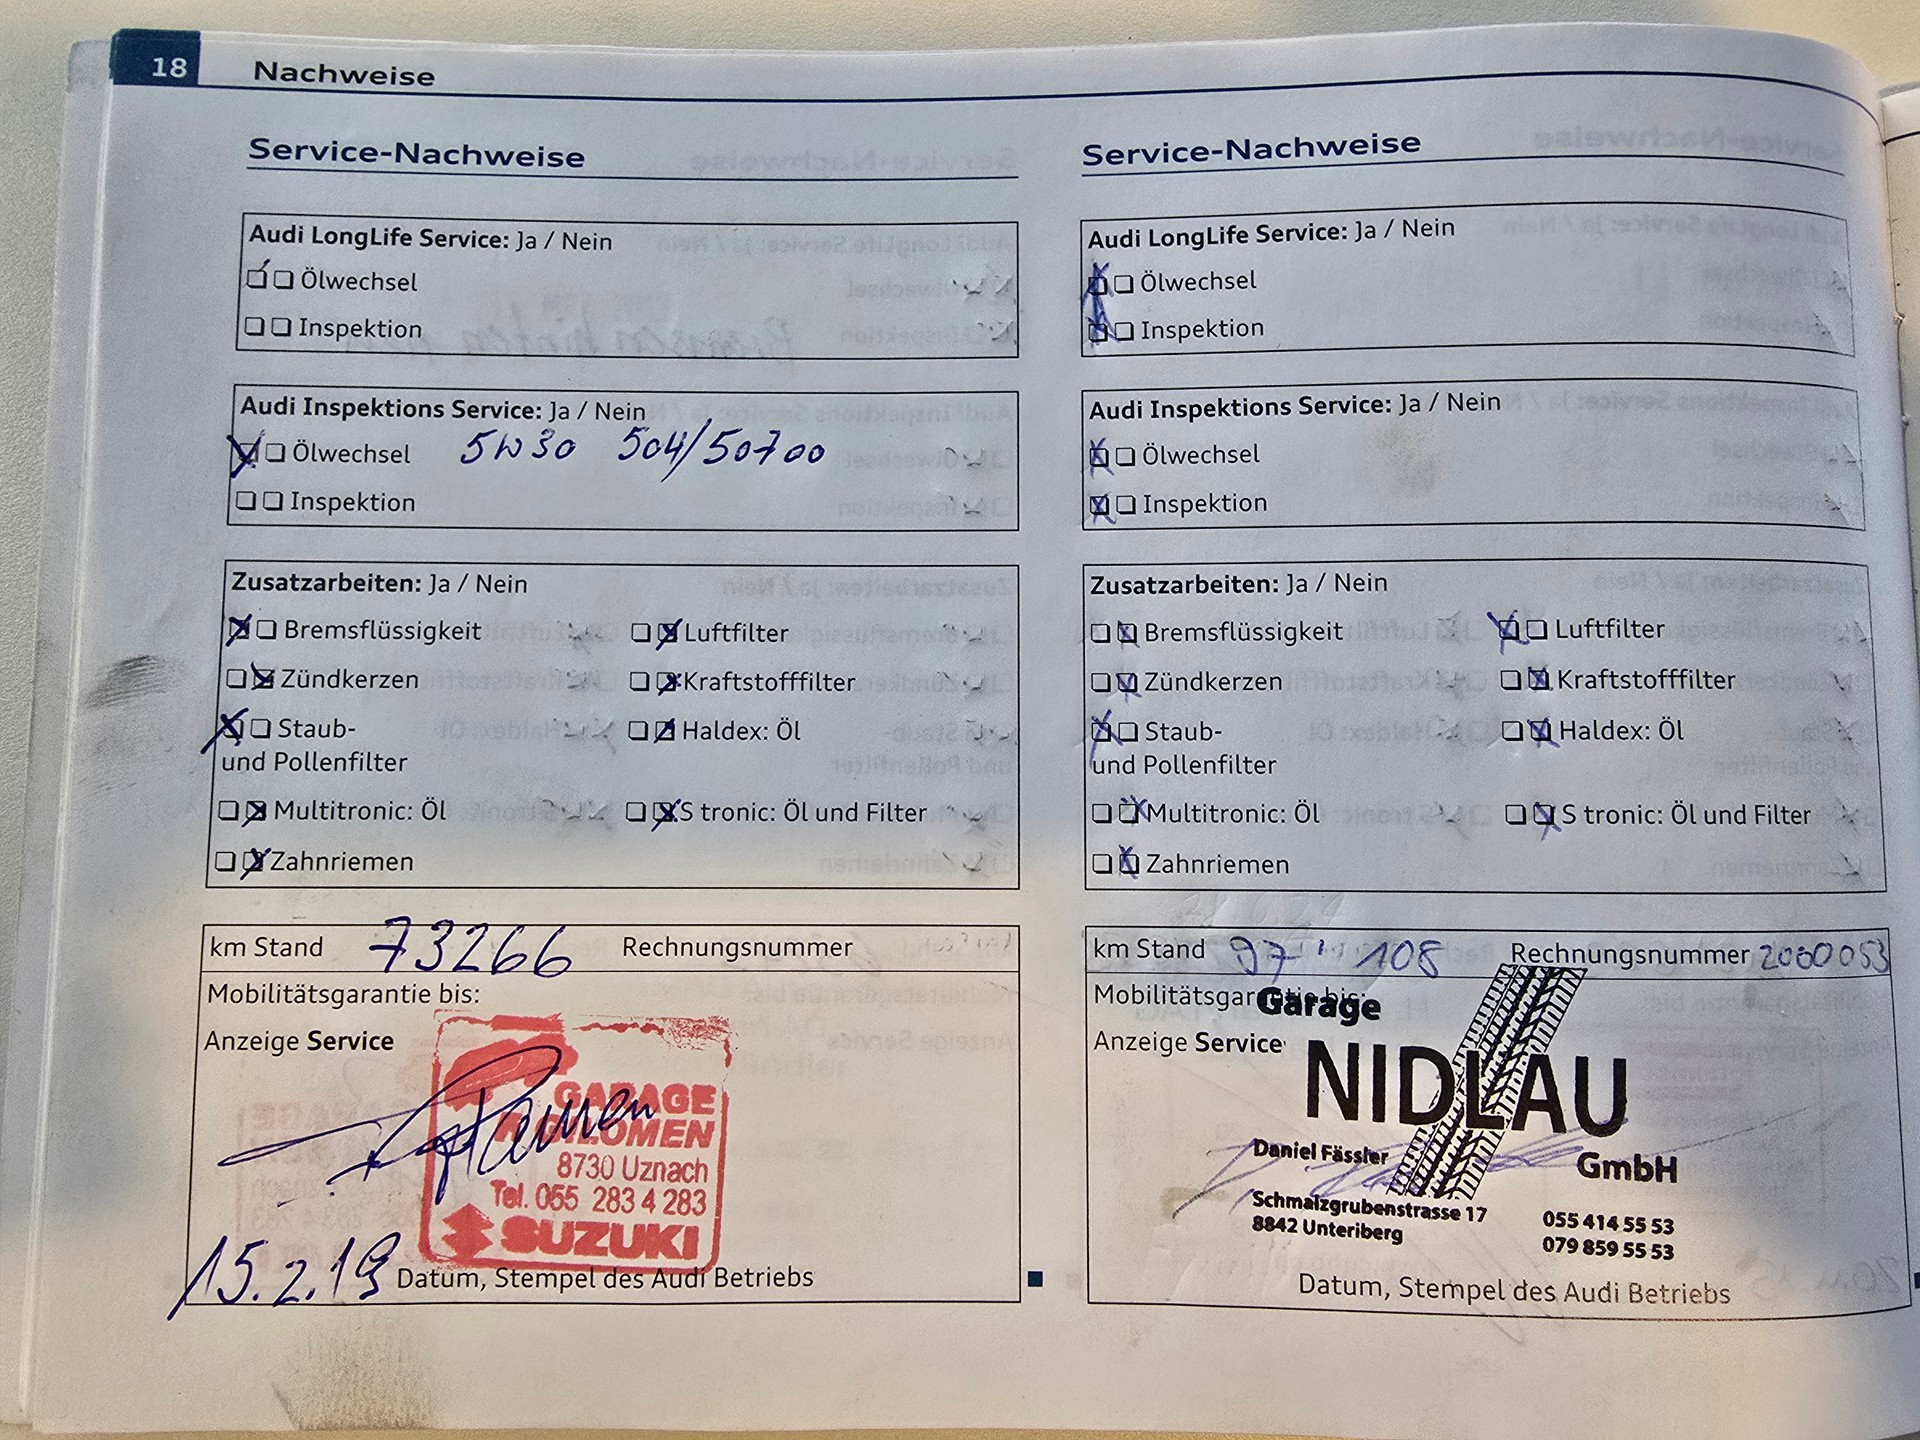 18 Nachweise
Service-Nachweise
Audi LongLife Service: Ja / Nein
Ölwechsel
Inspektion
Audi Inspektions Service: Ja / Nein
Ölwechsel 5W30 504/50700
Inspektion
Zusatzarbeiten: Ja / Nein
Bremsflüssigkeit Luftfilter
Zündkerzen Kraftstofffilter
Staub- Haldex: Öl
und Pollenfilter
Multitronic: Öl S tronic: Öl und Filter
Zahnriemen
km Stand 73266 Rechnungsnummer
Mobilitätsgarantie bis:
Anzeige Service
GARAGE
GILOMEN
8730 Uznach
Tel. 055 283 4 283
SUZUKI
15.2.19 Datum, Stempel des Audi Betriebs
Service-Nachweise
Audi LongLife Service: Ja / Nein
Ölwechsel
Inspektion
Audi Inspektions Service: Ja / Nein
Ölwechsel
Inspektion
Zusatzarbeiten: Ja / Nein
Bremsflüssigkeit Luftfilter
Zündkerzen Kraftstofffilter
Staub- Haldex: Öl
und Pollenfilter
Multitronic: Öl S tronic: Öl und Filter
Zahnriemen
km Stand 97'108 Rechnungsnummer 2000053
Mobilitätsgarantie bis:
Garage
Anzeige Service
NIDLAU
Daniel Fässler
GmbH
Schmalzgrubenstrasse 17 055 414 55 53
8842 Unteriberg 079 859 55 53
Datum, Stempel des Audi Betriebs